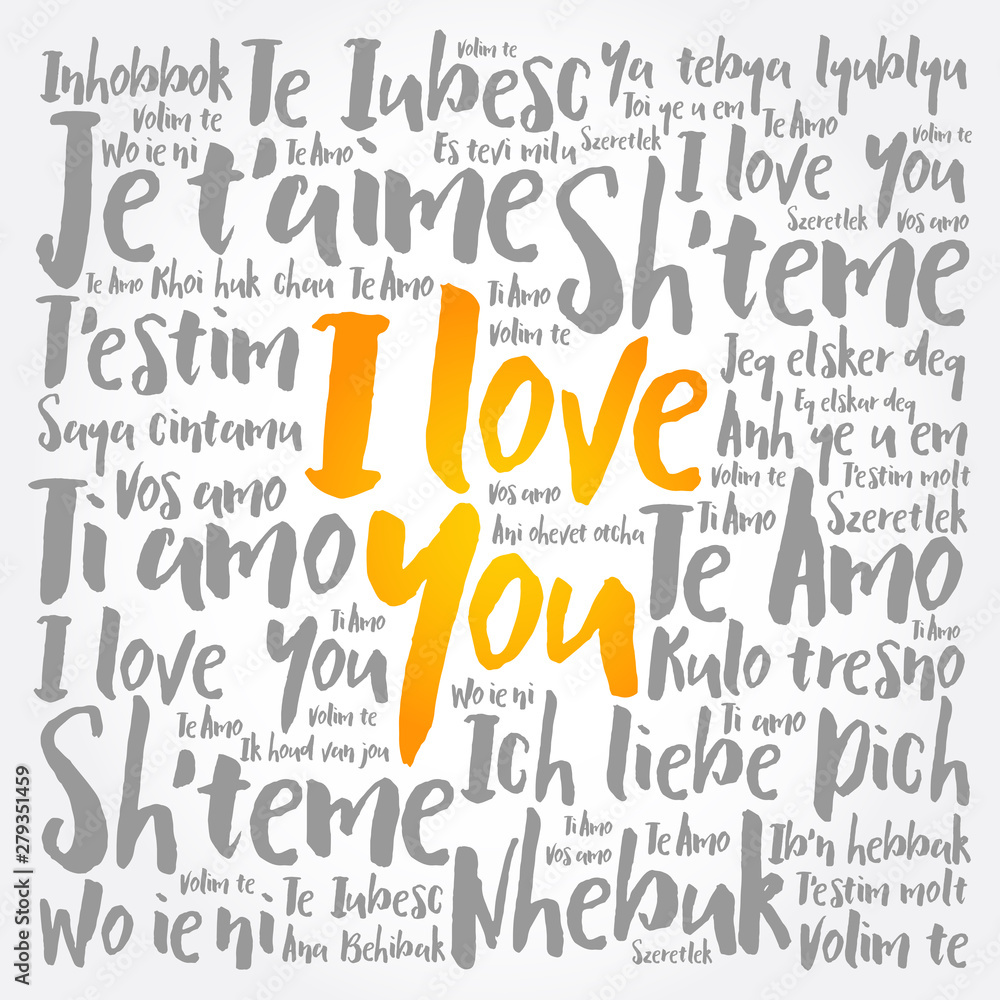 Inhobbok Te Iubesc Volim te Ya tebya lyublyu
Volim te Toi ye u em Te Amo
Wo ie ni Te Amo Es tevi milu Szeretlek I love You Volim te
Je t'aime Sh'teme Szeretlek Vos amo
Te Amo Khoi huk chau Te Amo Ti Amo
T'estim Volim te Jeg elsker deg
I love You
Eg elskar deg
Saya cintamu Anh ye u em
Vos amo Vos amo Volim te T'estim molt
Ti amo Ani ohevet otcha Te Amo Ti Amo Szeretlek
I love You Ti Amo Kulo tresno Ti Amo
Wo ie ni
Sh'teme Te Amo Volim te Ich liebe Dich Ti amo
Ik houd van jou
Nhebuk Ti Amo Te Amo Ib'n hebbak
Vos amo
Wo ie ni Volim te Te Iubesc T'estim molt
Ana Behibak Szeretlek Volim te
Adobe Stock | #279351459